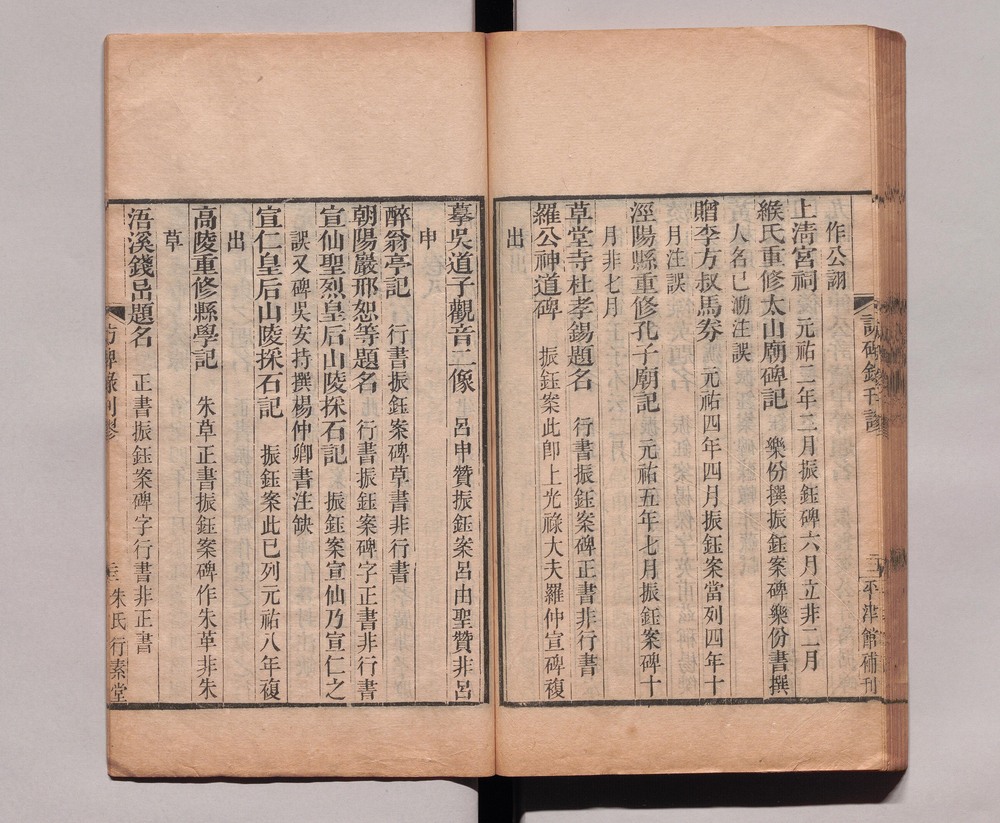 作公詡
上淸宮祠 元祐二年三月振鈺碑六月立非二月
緱氏重修太山廟碑記 樂份撰振鈺案碑樂份書撰
人名已泐注誤
贈李方叔馬券 元祐四年四月振鈺案當列四年十
月注誤
涇陽縣重修孔子廟記 元祐五年七月振鈺案碑十
月非七月
草堂寺杜孝錫題名 行書振鈺案碑正書非行書
羅公神道碑 振鈺案此卽上光祿大夫羅仲宣碑複
出
訪碑錄刊謬
二 平津館補刊
摹吳道子觀音二像 呂申贊振鈺案呂由聖贊非呂
申
醉翁亭記 行書振鈺案碑草書非行書
朝陽巖邢恕等題名 行書振鈺案碑字正書非行書
宣仙聖烈皇后山陵採石記 振鈺案宣仙乃宣仁之
誤又碑吳安持撰楊仲卿書注缺
宣仁皇后山陵採石記 振鈺案此已列元祐八年複
出
高陵重修縣學記 朱草正書振鈺案碑作朱革非朱
草
浯溪錢昷題名 正書振鈺案碑字行書非正書
訪碑錄刊謬
三 朱氏行素堂